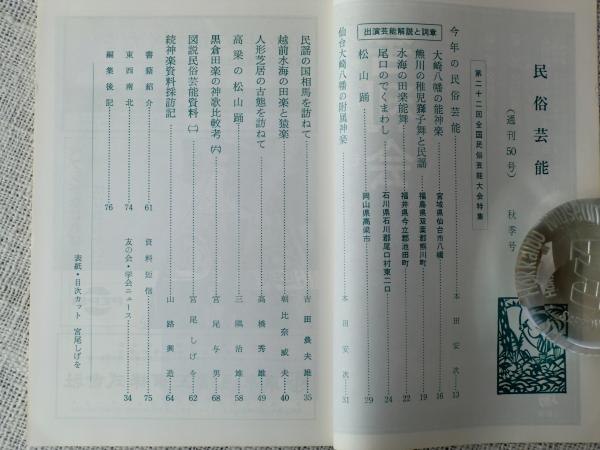 民俗芸能
(通刊50号) 秋季号
第二十二回全国民俗芸能大会特集
今年の民俗芸能 本田安次 13
出演芸能解説と詞章
大崎八幡の能神楽 宮城県仙台市八幡 16
熊川の稚児獅子舞と民謡 福島県双葉郡熊川町 19
水海の田楽能舞 福井県今立郡池田町 22
尾口のでくまわし 石川県石川郡尾口村東二口 24
松山踊 岡山県高梁市 29
仙台大崎八幡の附属神楽 本田安次 31
民謡の国相馬を訪ねて 35
越前水海の田楽と猿楽 朝比奈威夫 40
人形芝居の古態を訪ねて 高橋秀雄 49
高梁の松山踊 三隅治雄 58
黒倉田楽の神歌比較考(六) 宮尾与男 68
図説民俗芸能資料(二) 宮尾しげを 62
続神楽資料採訪記 山路興造 64
書籍紹介 61
資料短信 75
東西南北 74
友の会・学会ニュース 34
編集後記 76
表紙・目次カット 宮尾しげを